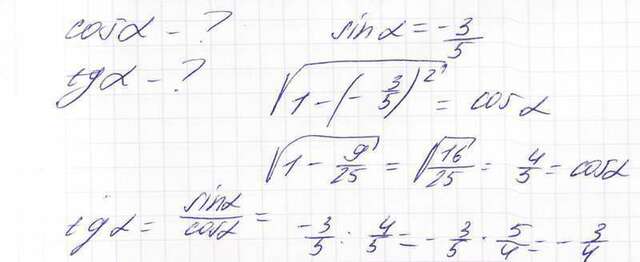 cosα - ?
sinα = -3/5
tgα - ?
√(1 - (-3/5)²) = cosα
√(1 - 9/25) = √(16/25) = 4/5 = cosα
tgα = sinα/cosα = -3/5 : 4/5 = -3/5 · 5/4 = -3/4